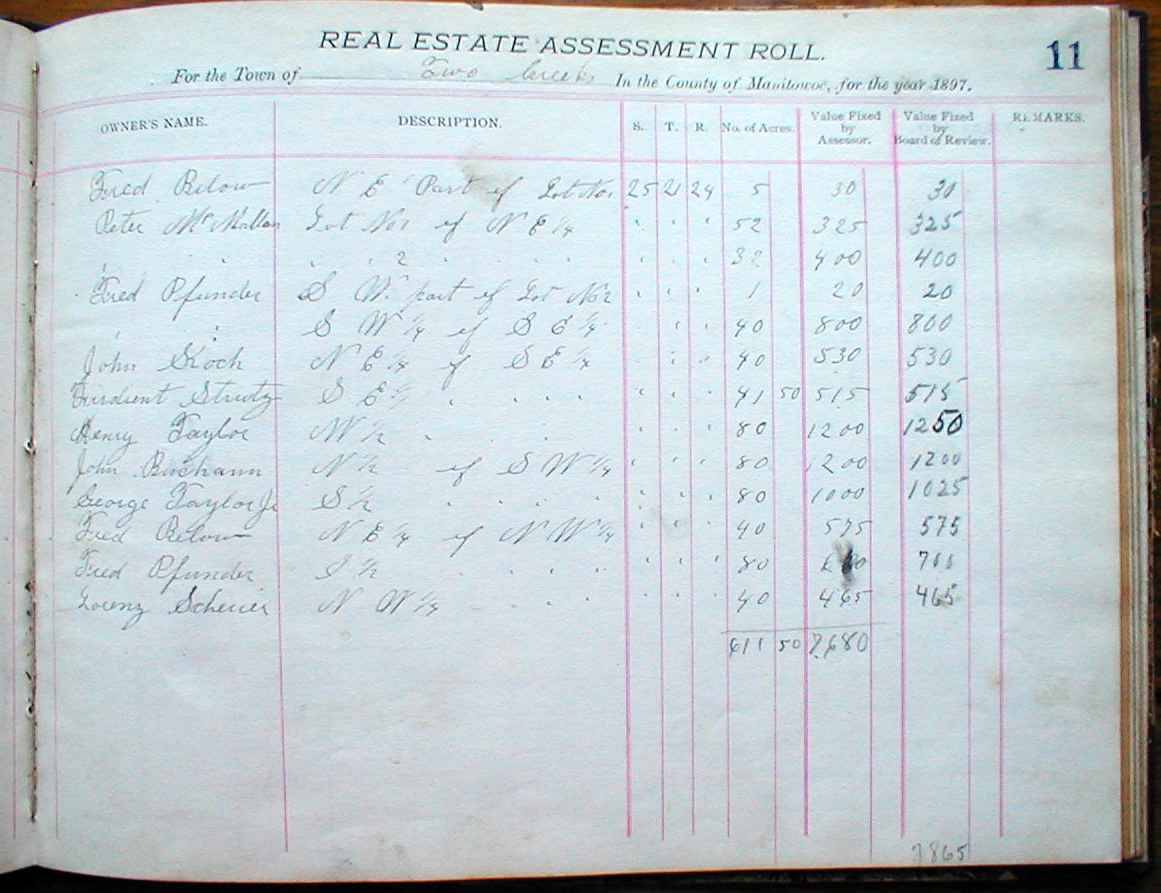 REAL ESTATE ASSESSMENT ROLL.
11
For the Town of Two Creeks In the County of Manitowoc, for the year 1897.
OWNER'S NAME. DESCRIPTION. S. T. R. No. of Acres. Value Fixed by Assessor. Value Fixed by Board of Review. REMARKS.
Fred Below N E Part of Lot No1 25 21 24 5 30 30
Peter Lot No1 of N E 1/4 " " " 52 325 325
" " " " 2 " " " " " " 32 400 400
Fred Pfunder S W. part of Lot No2 " " " 1 20 20
" " S W 1/4 of S E 1/4 " " 40 800 800
John Koch N E 1/4 of S E 1/4 " " 40 530 530
Strutz S E 1/4 " " " " " " " 41 50 515 515
Henry Taylor W 1/2 " " " " " 80 1200 1250
John N 1/2 of S W 1/4 " " " 80 1200 1200
George Taylor Jr S 1/2 " " " " " " " 80 1000 1025
Fred Below N E 1/4 of N W 1/4 " " " 40 575 575
Fred Pfunder S 1/2 " " " " " " " 80 700
Lorenz Scheuer N W 1/4 " " " " " " " 40 465 465
611 50 7680
7865